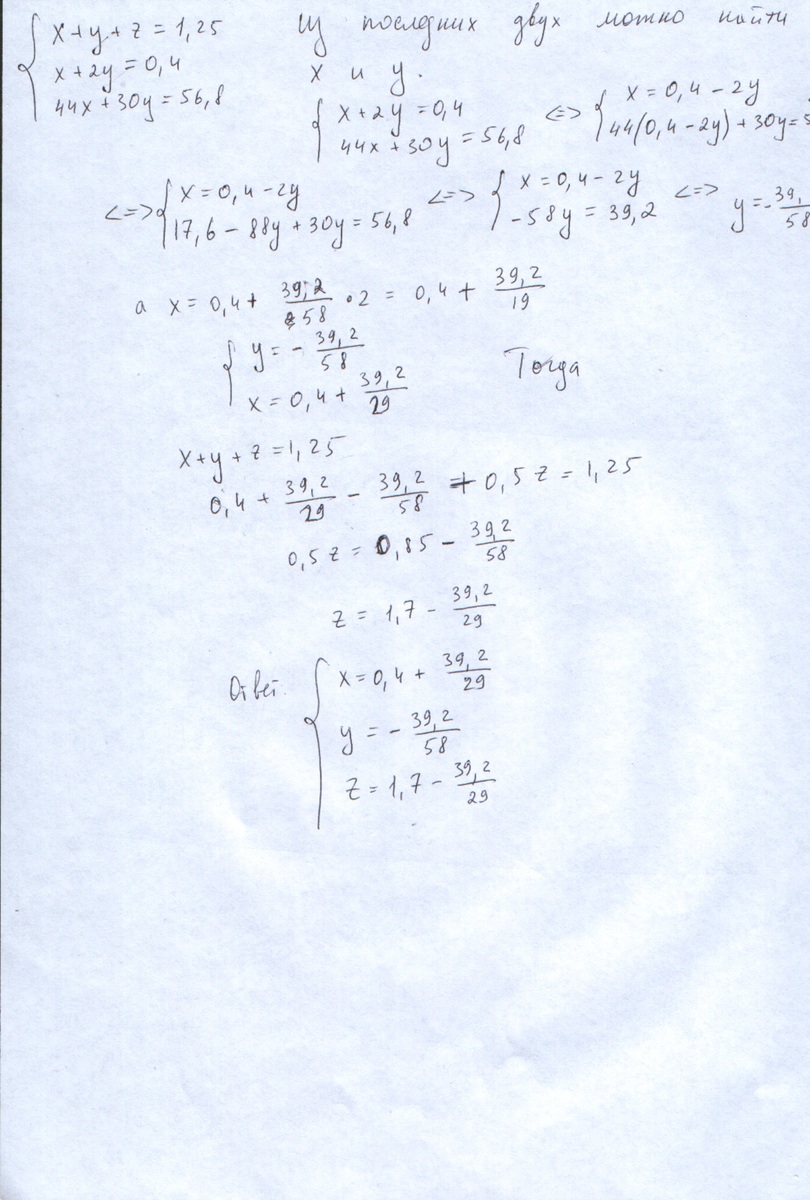 { x + y + z = 1,25
x + 2y = 0,4
44x + 30y = 56,8
Из последних двух можно найти
x и y.
{ x + 2y = 0,4
44x + 30y = 56,8
<=> { x = 0,4 - 2y
44(0,4 - 2y) + 30y =
<=> { x = 0,4 - 2y
17,6 - 88y + 30y = 56,8
<=> { x = 0,4 - 2y
-58y = 39,2
<=> y = - 39,/58
а x = 0,4 + 39,2/58 • 2 = 0,4 + 39,2/19
{ y = - 39,2/58
x = 0,4 + 39,2/29
Тогда
x + y + z = 1,25
0,4 + 39,2/29 - 39,2/58 + 0,5 z = 1,25
0,5 z = 0,85 - 39,2/58
z = 1,7 - 39,2/29
Ответ { x = 0,4 + 39,2/29
y = - 39,2/58
z = 1,7 - 39,2/29